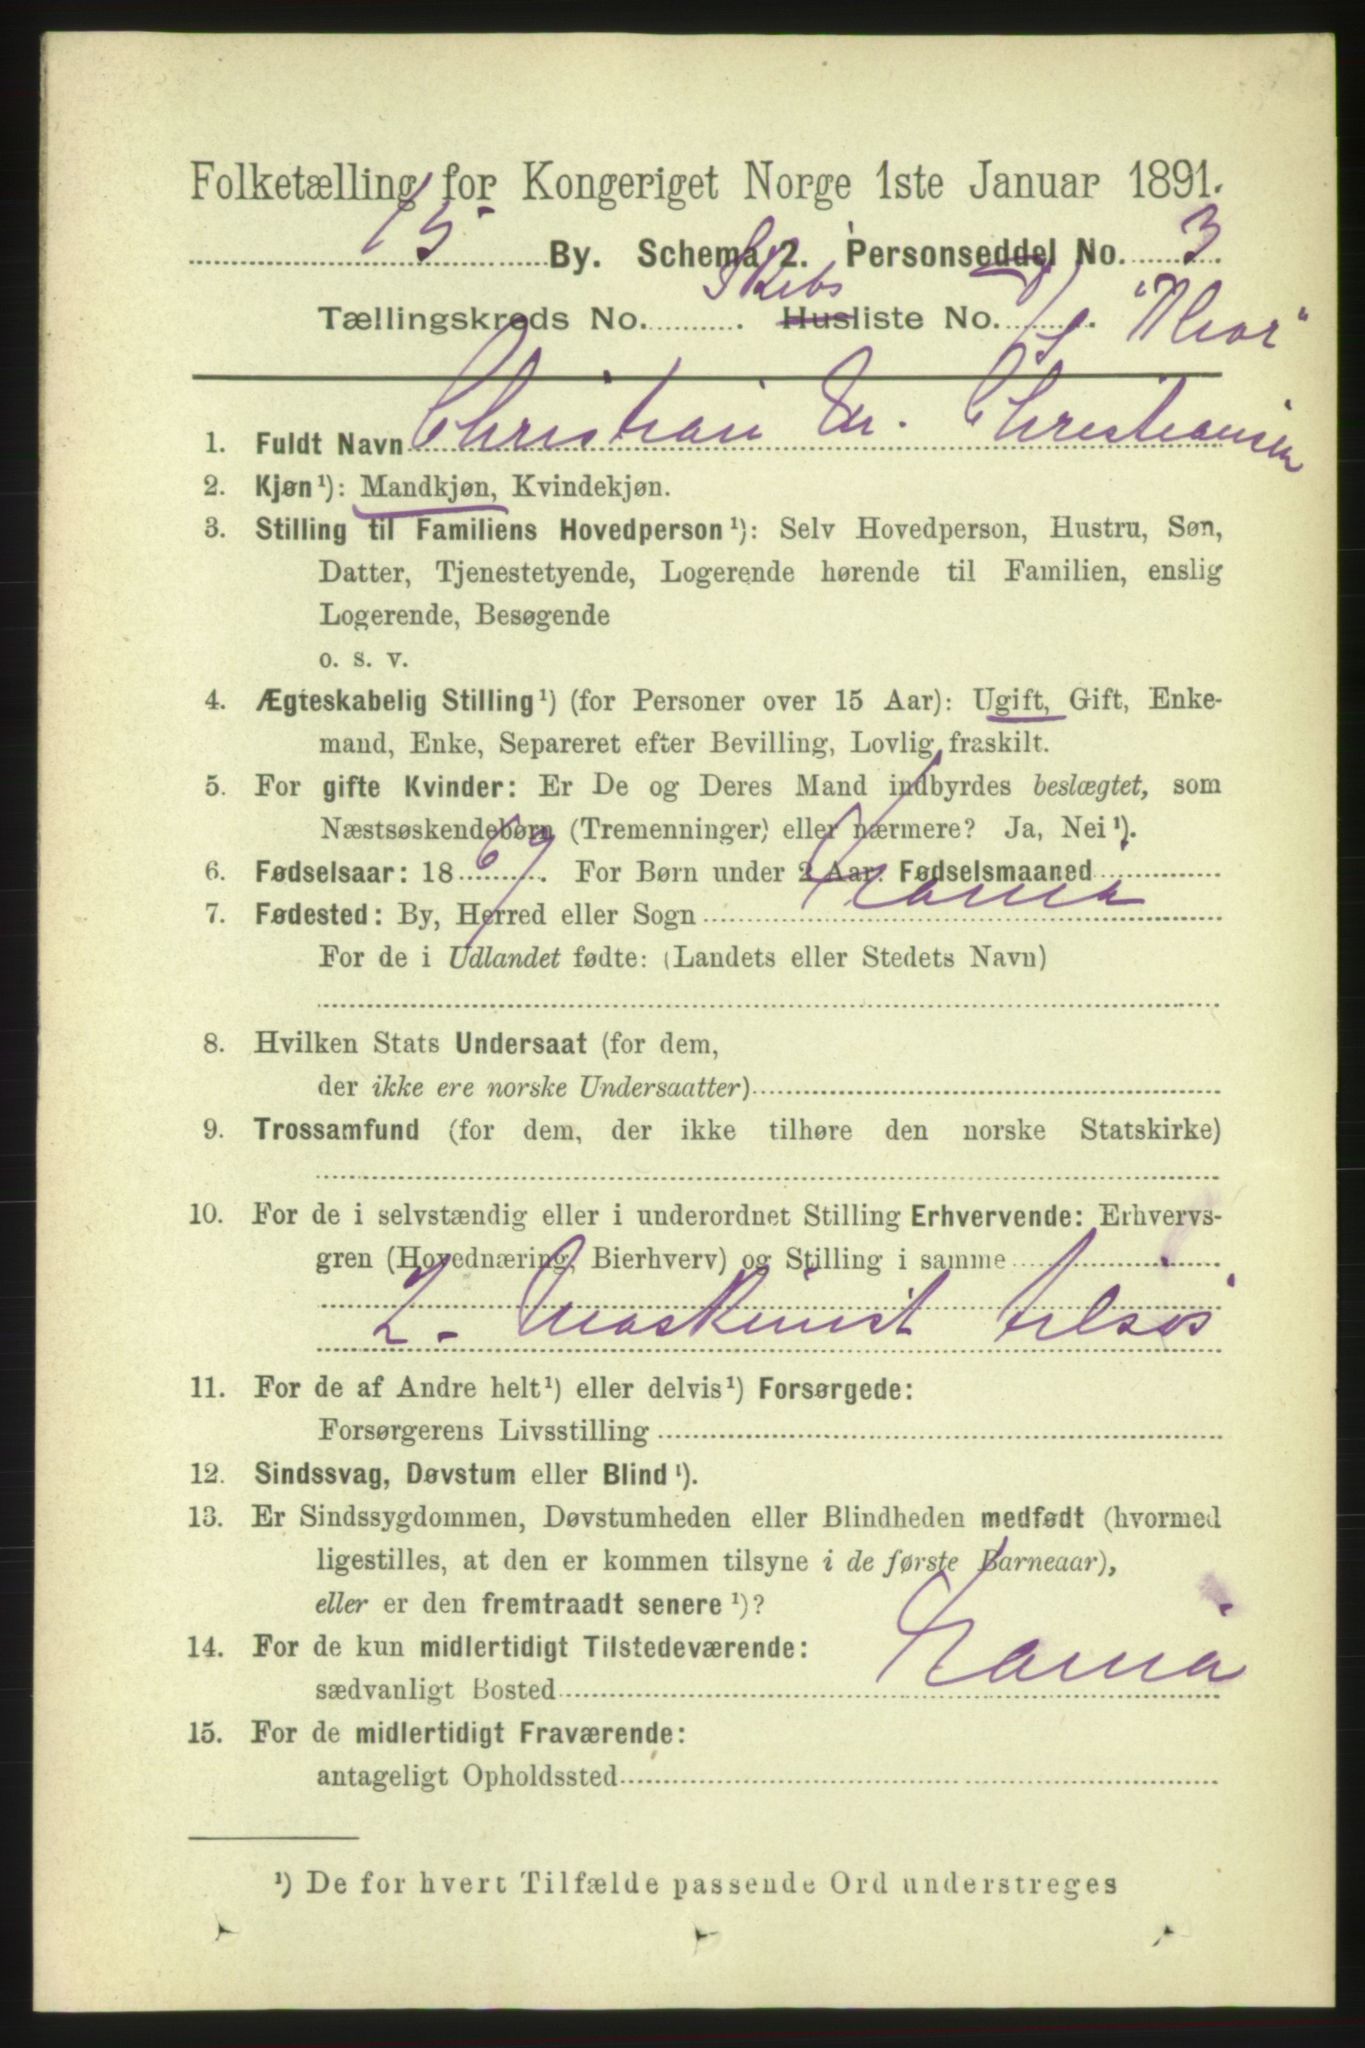 Folketælling for Kongeriget Norge 1ste Januar 1891.
15 By. Schema 2. Personseddel No. 3
Tællingskreds No. Skibs Husliste No. "Thor"
1. Fuldt Navn Christian M. Christiansen
2. Kjøn¹): Mandkjøn, Kvindekjøn.
3. Stilling til Familiens Hovedperson¹): Selv Hovedperson, Hustru, Søn,
Datter, Tjenestetyende, Logerende hørende til Familien, enslig
Logerende, Besøgende
o. s. v.
4. Ægteskabelig Stilling¹) (for Personer over 15 Aar): Ugift, Gift, Enke-
mand, Enke, Separeret efter Bevilling, Lovlig fraskilt.
5. For gifte Kvinder: Er De og Deres Mand indbyrdes beslægtet, som
Næstsøskendebørn (Tremenninger) eller nærmere? Ja, Nei¹).
6. Fødselsaar: 1869. For Børn under 2 Aar: Fødselsmaaned
7. Fødested: By, Herred eller Sogn
For de i Udlandet fødte: (Landets eller Stedets Navn)
8. Hvilken Stats Undersaat (for dem,
der ikke ere norske Undersaatter)
9. Trossamfund (for dem, der ikke tilhøre den norske Statskirke)
10. For de i selvstændig eller i underordnet Stilling Erhvervende: Erhvervs-
gren (Hovednæring, Bierhverv) og Stilling i samme
2. Maskinist tilsøs
11. For de af Andre helt¹) eller delvis¹) Forsørgede:
Forsørgerens Livsstilling
12. Sindssvag, Døvstum eller Blind¹).
13. Er Sindssygdommen, Døvstumheden eller Blindheden medfødt (hvormed
ligestilles, at den er kommen tilsyne i de første Barneaar),
eller er den fremtraadt senere¹)?
14. For de kun midlertidigt Tilstedeværende:
sædvanligt Bosted
15. For de midlertidigt Fraværende:
antageligt Opholdssted
¹) De for hvert Tilfælde passende Ord understreges